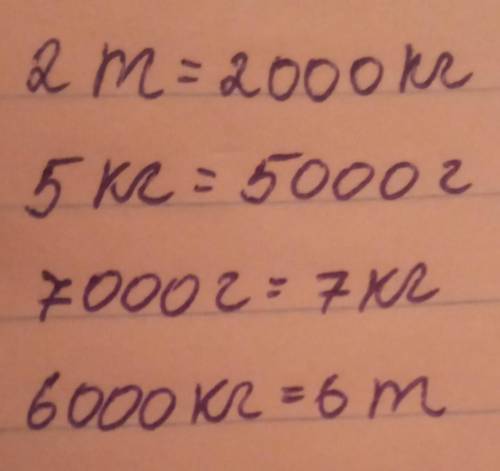 2 т = 2000 кг
5 кг = 5000 г
7000 г = 7 кг
6000 кг = 6 т